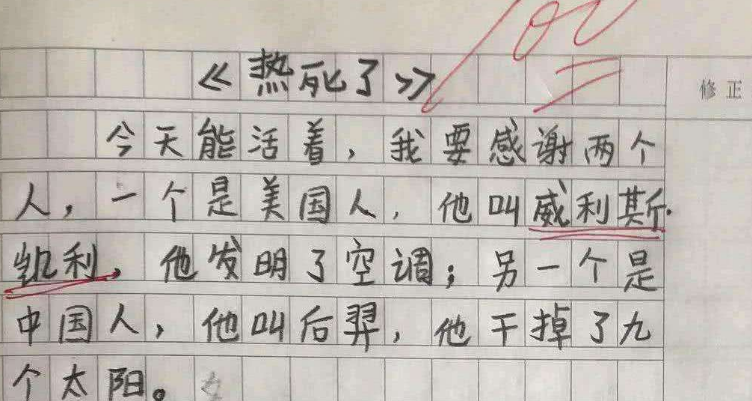 100
《热死了》
修正
今天能活着，我要感谢两个
人，一个是美国人，他叫威利斯·
凯利，他发明了空调；另一个是
中国人，他叫后羿，他干掉了九
个太阳。